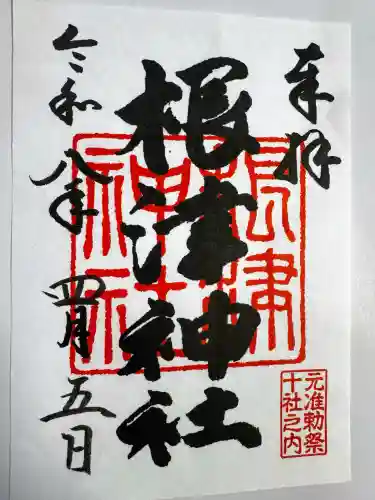 奉拝
根津神社
根津神社
元准勅祭
十社之内
令和八年四月五日